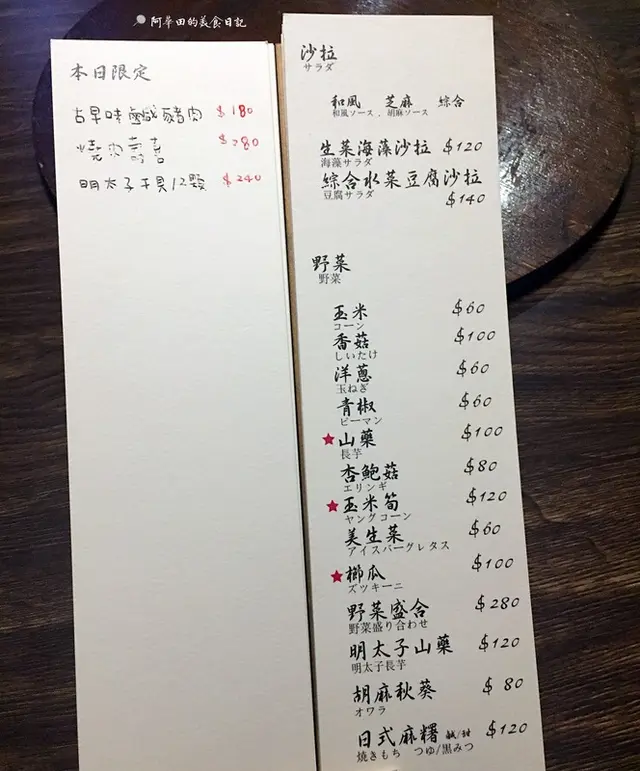 阿犇田的美食日記
本日限定
古早味鹹豬肉 $180
燒肉壽喜 $280
明太子干貝12顆 $240
沙拉
サラダ
和風 芝麻 綜合
和風ソース、胡麻ソース
生菜海藻沙拉 $120
海藻サラダ
綜合水菜豆腐沙拉
豆腐サラダ $140
野菜
野菜
玉米 $60
コーン
香菇 $100
しいたけ
洋蔥 $60
玉ねぎ
青椒 $60
ピーマン
山藥 $100
長芋
杏鮑菇 $80
エリンギ
玉米筍 $120
ヤングコーン
美生菜 $60
アイスバーグレタス
櫛瓜 $100
ズッキーニ
野菜盛合 $280
野菜盛り合わせ
明太子山藥 $120
明太子長芋
胡麻秋葵 $80
オワラ
日式麻糬 鹹/甜 $120
焼きもち つゆ/黒みつ